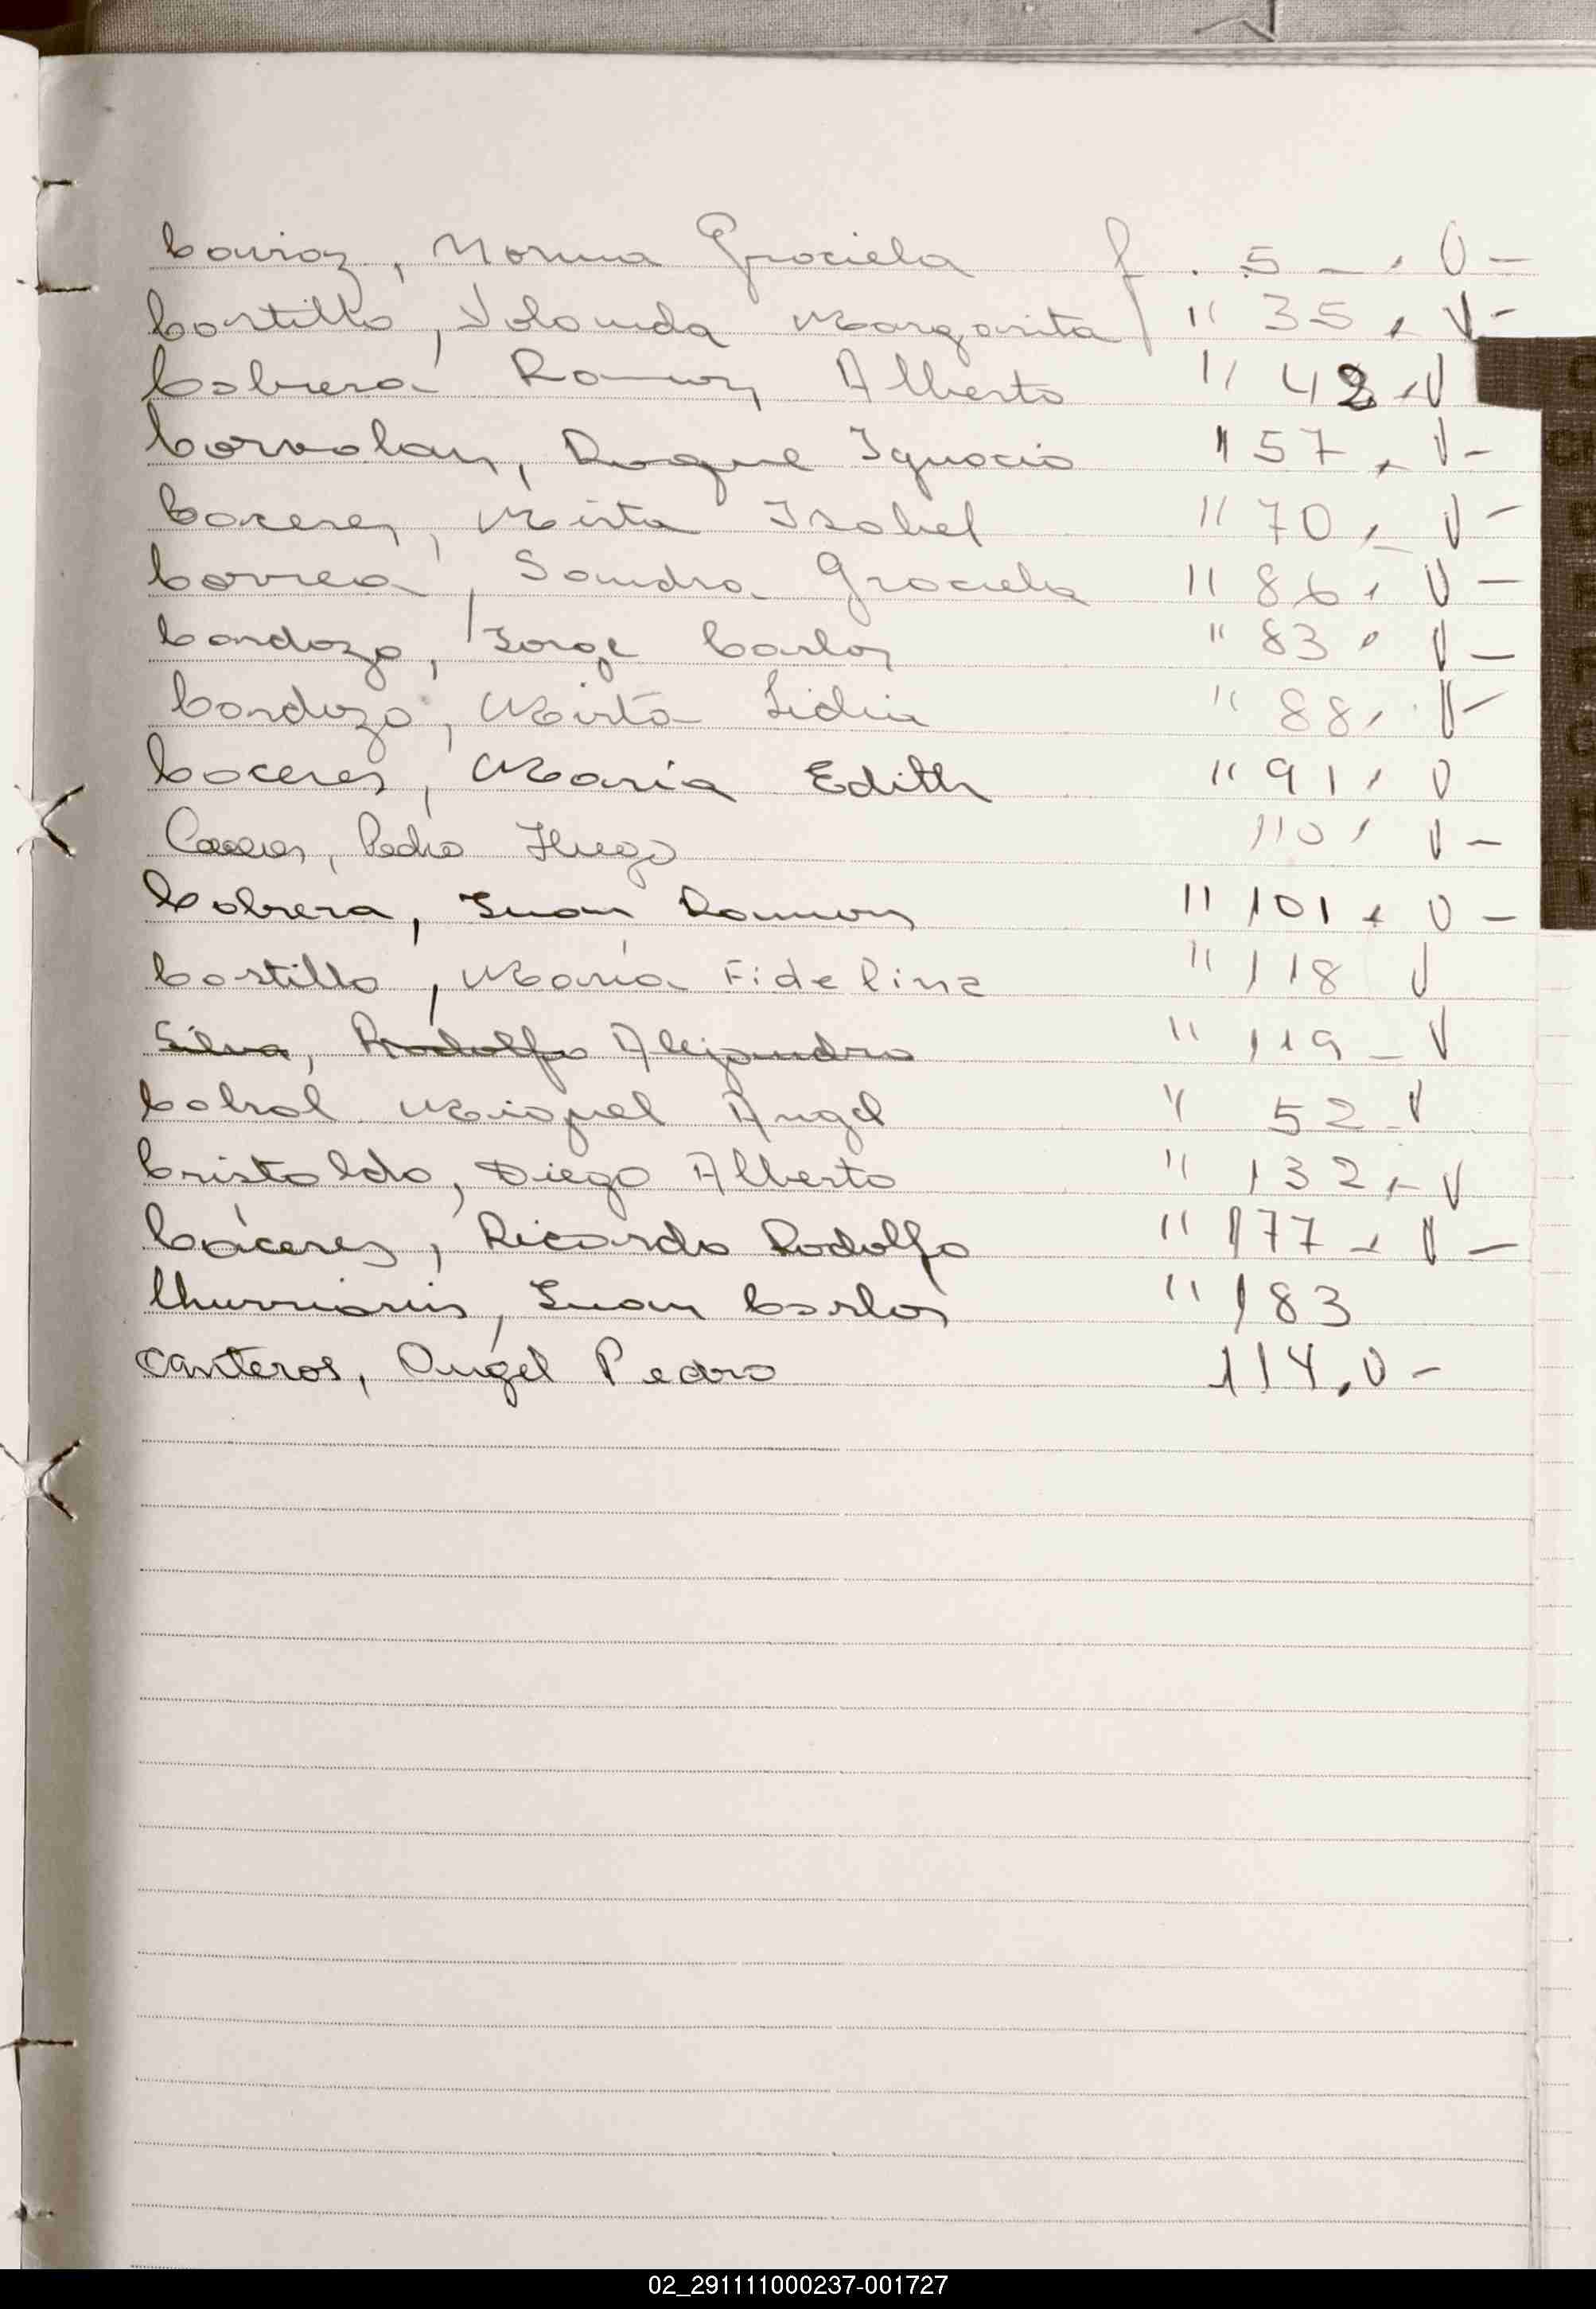 Carioz, Norma Graciela f. 5 -, V -
Castillo, Yolanda Margarita " 35, V -
Cabrera Ramon Alberto " 42, V
Corvalan, Roque Ignacio " 57, V -
Caceres, Mirta Isabel " 70, V -
Correa, Sandra Graciela " 86, V -
Cardozo, Jorge Carlos " 83, V -
Cardozo, Mirta Lidia " 88, V -
Caceres, Maria Edith " 91, V
Pedro Hugo 110, V -
Cabrera, Juan Ramon " 101, V -
Castillo, Maria Fidelina " 118 V
Silva, Rodolfo Alejandro " 119 - V
Cabral Miguel Angel " 52 - V
Cristaldo, Diego Alberto " 132, - V
Cáceres, Ricardo Rodolfo " 177 - V -
Juan Carlos " 183
Canteros, Angel Pedro 114, V -
02_291111000237-001727